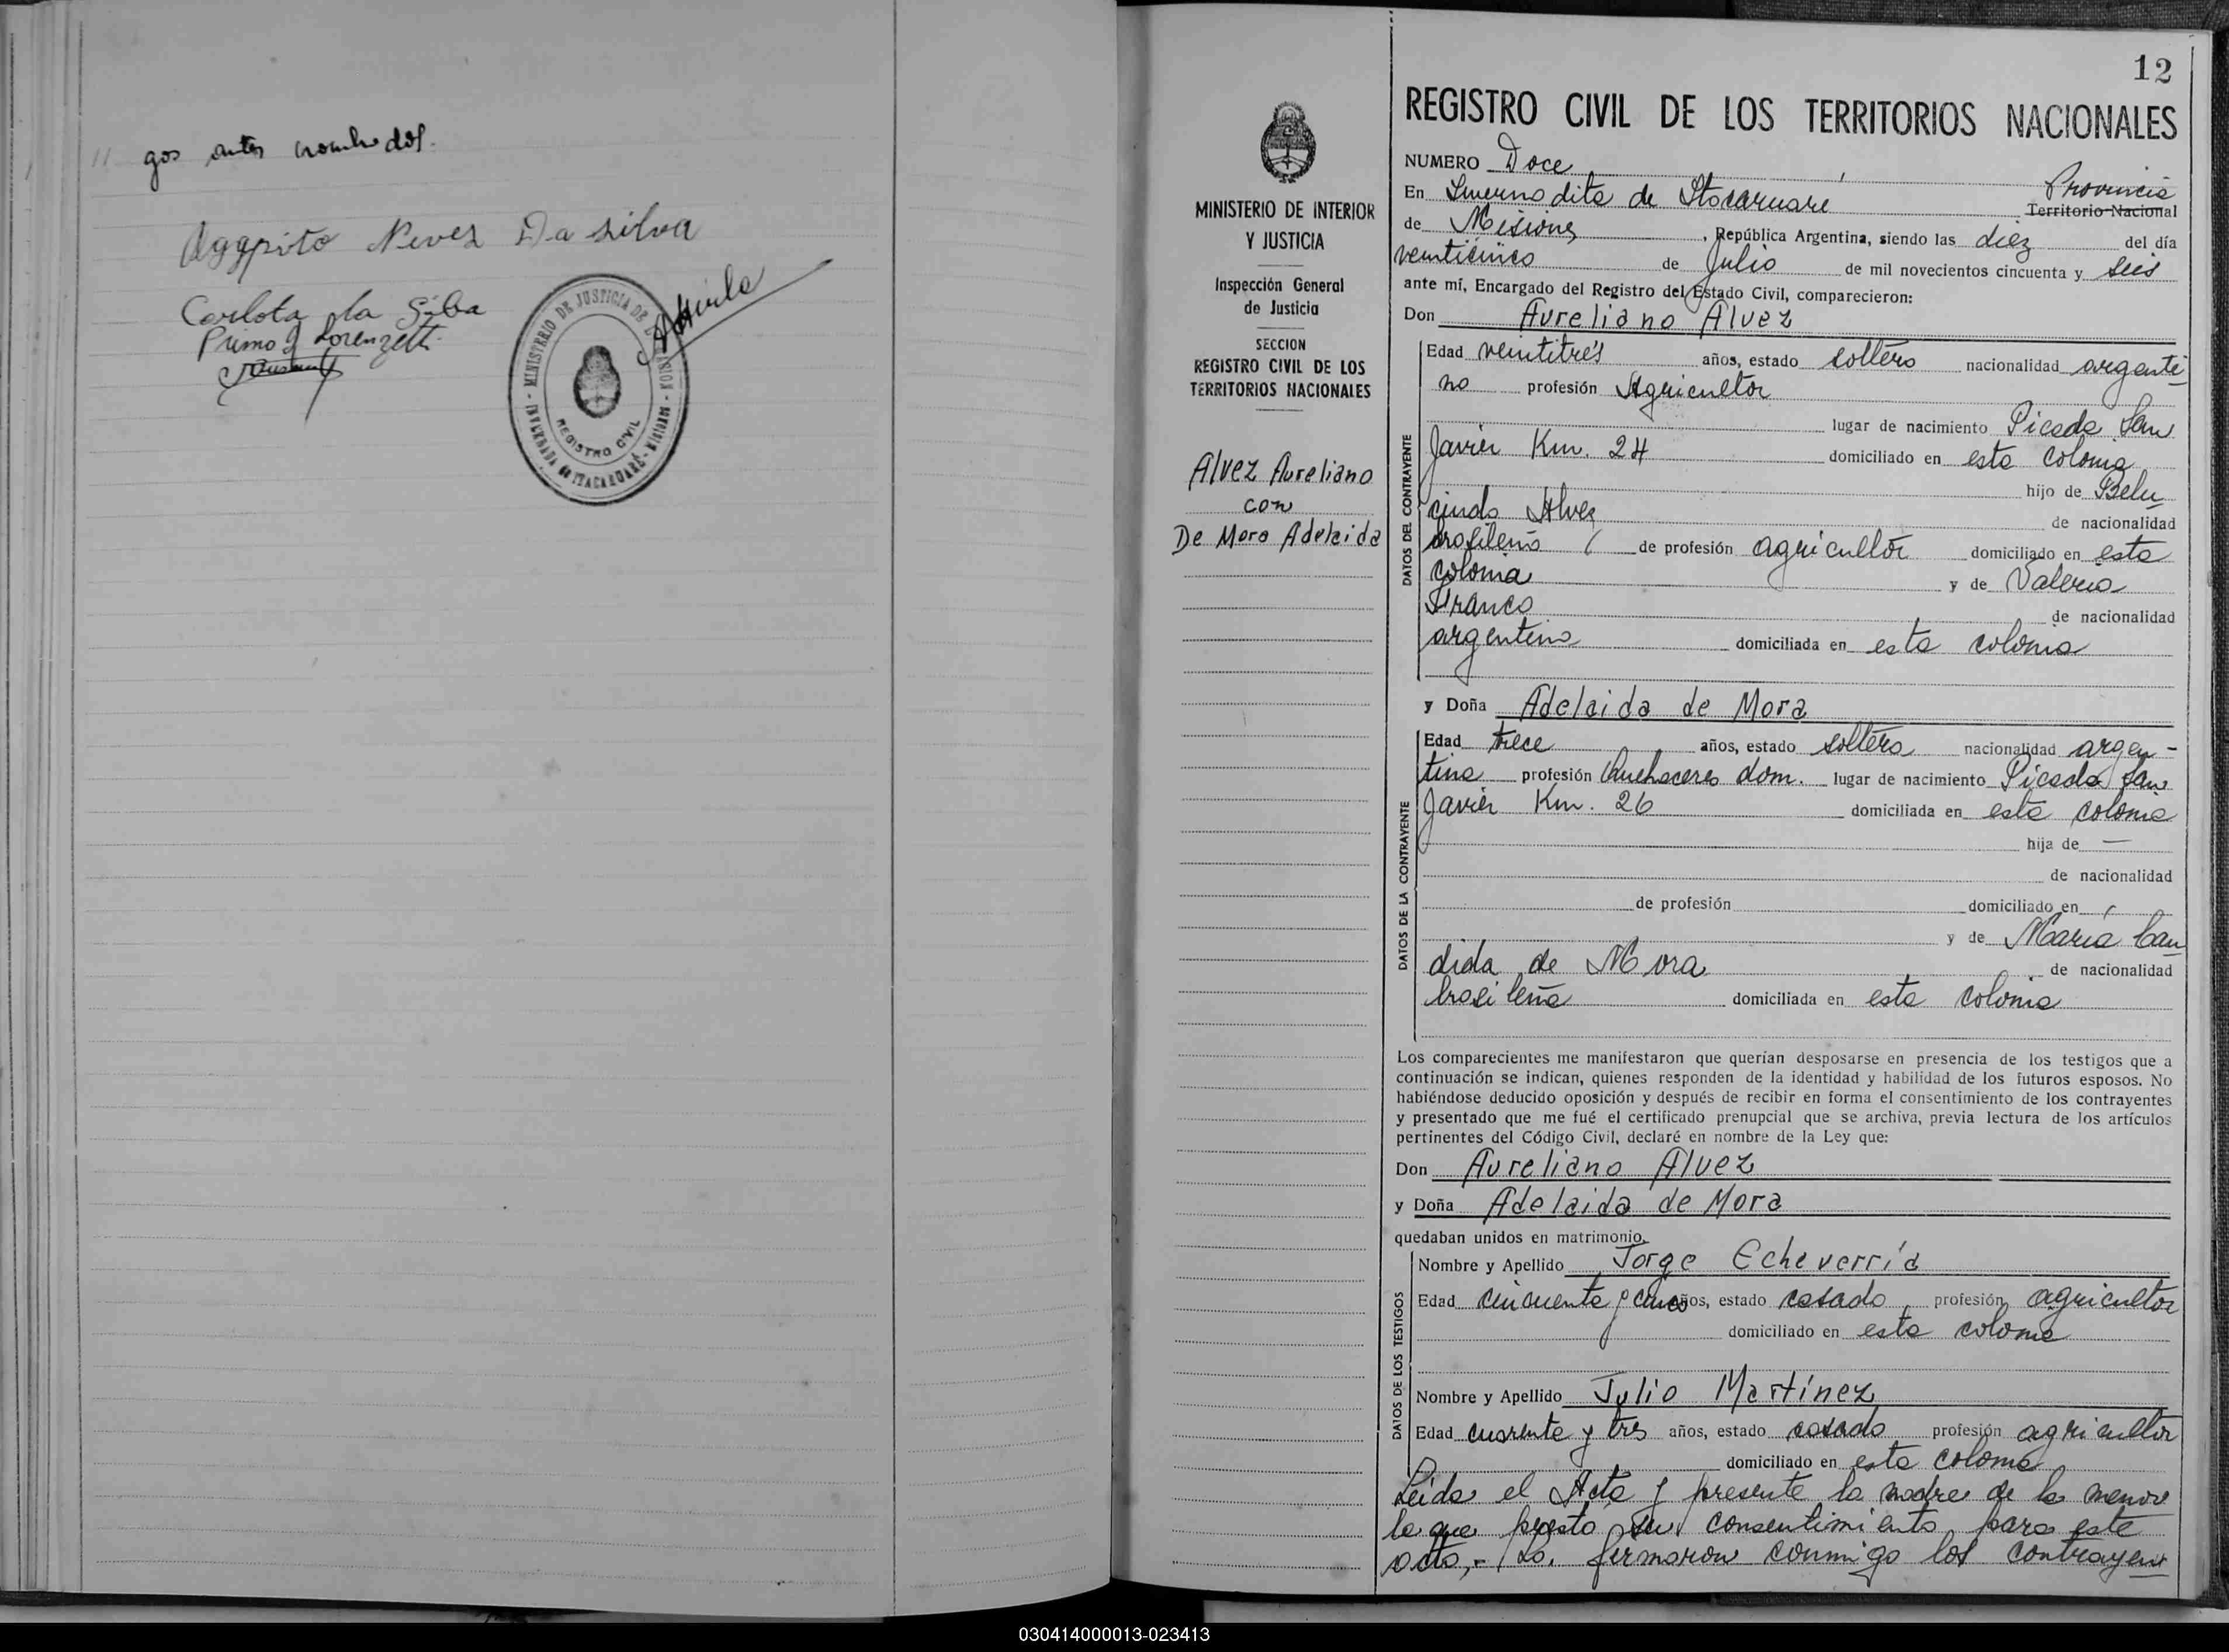 11 gos antes nombrados.
Agapito Neves Da silva
Carlota da Silva
Primo J Lorenzetti
REGISTRO CIVIL
MINISTERIO DE INTERIOR
Y JUSTICIA
Inspección General
de Justicia
SECCION
REGISTRO CIVIL DE LOS
TERRITORIOS NACIONALES
Alvez Aureliano
con
De Mora Adelaida
12
REGISTRO CIVIL DE LOS TERRITORIOS NACIONALES
NUMERO Doce
Provincia
En de Itacaruaré Territorio Nacional
de Misiones, República Argentina, siendo las diez del día
veinticinco de Julio de mil novecientos cincuenta y seis
ante mí, Encargado del Registro del Estado Civil, comparecieron:
Don Aureliano Alvez
DATOS DEL CONTRAYENTE
Edad veintitrés años, estado soltero nacionalidad argenti
no profesión Agricultor
lugar de nacimiento Picada San
Javier Km. 24 domiciliado en esta colonia
hijo de Belu
cindo Alvez de nacionalidad
brasileño de profesión agricultor domiciliado en esta
colonia y de Valeria
Franco de nacionalidad
argentina domiciliada en esta colonia
y Doña Adelaida de Mora
DATOS DE LA CONTRAYENTE
Edad trece años, estado soltera nacionalidad argen-
tina profesión Quehaceres dom. lugar de nacimiento Picada San
Javier Km. 26 domiciliada en esta colonia
hija de —
de nacionalidad
de profesión domiciliado en
y de María Can
dida de Mora de nacionalidad
brasileña domiciliada en esta colonia
Los comparecientes me manifestaron que querían desposarse en presencia de los testigos que a
continuación se indican, quienes responden de la identidad y habilidad de los futuros esposos. No
habiéndose deducido oposición y después de recibir en forma el consentimiento de los contrayentes
y presentado que me fué el certificado prenupcial que se archiva, previa lectura de los artículos
pertinentes del Código Civil, declaré en nombre de la Ley que:
Don Aureliano Alvez
y Doña Adelaida de Mora
quedaban unidos en matrimonio.
DATOS DE LOS TESTIGOS
Nombre y Apellido Jorge Echeverría
Edad cincuenta y cinco años, estado casado profesión agricultor
domiciliado en esta colonia
Nombre y Apellido Julio Martínez
Edad cuarenta y tres años, estado casado profesión agricultor
domiciliado en esta colonia
Leída el Acta y presente la madre de la menor
la que presta su consentimiento para este
acto,- La firmaron conmigo los contrayen
030414000013-023413